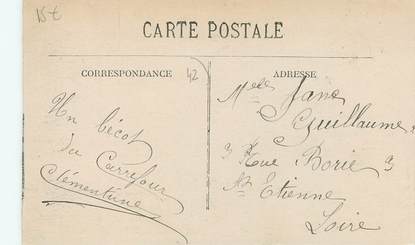 15€
CARTE POSTALE
CORRESPONDANCE
42
ADRESSE
Un bécot
du Carrefour
Clémentine
Melle Jane
Guillaume
3 Rue Borie 3
St Etienne
Loire